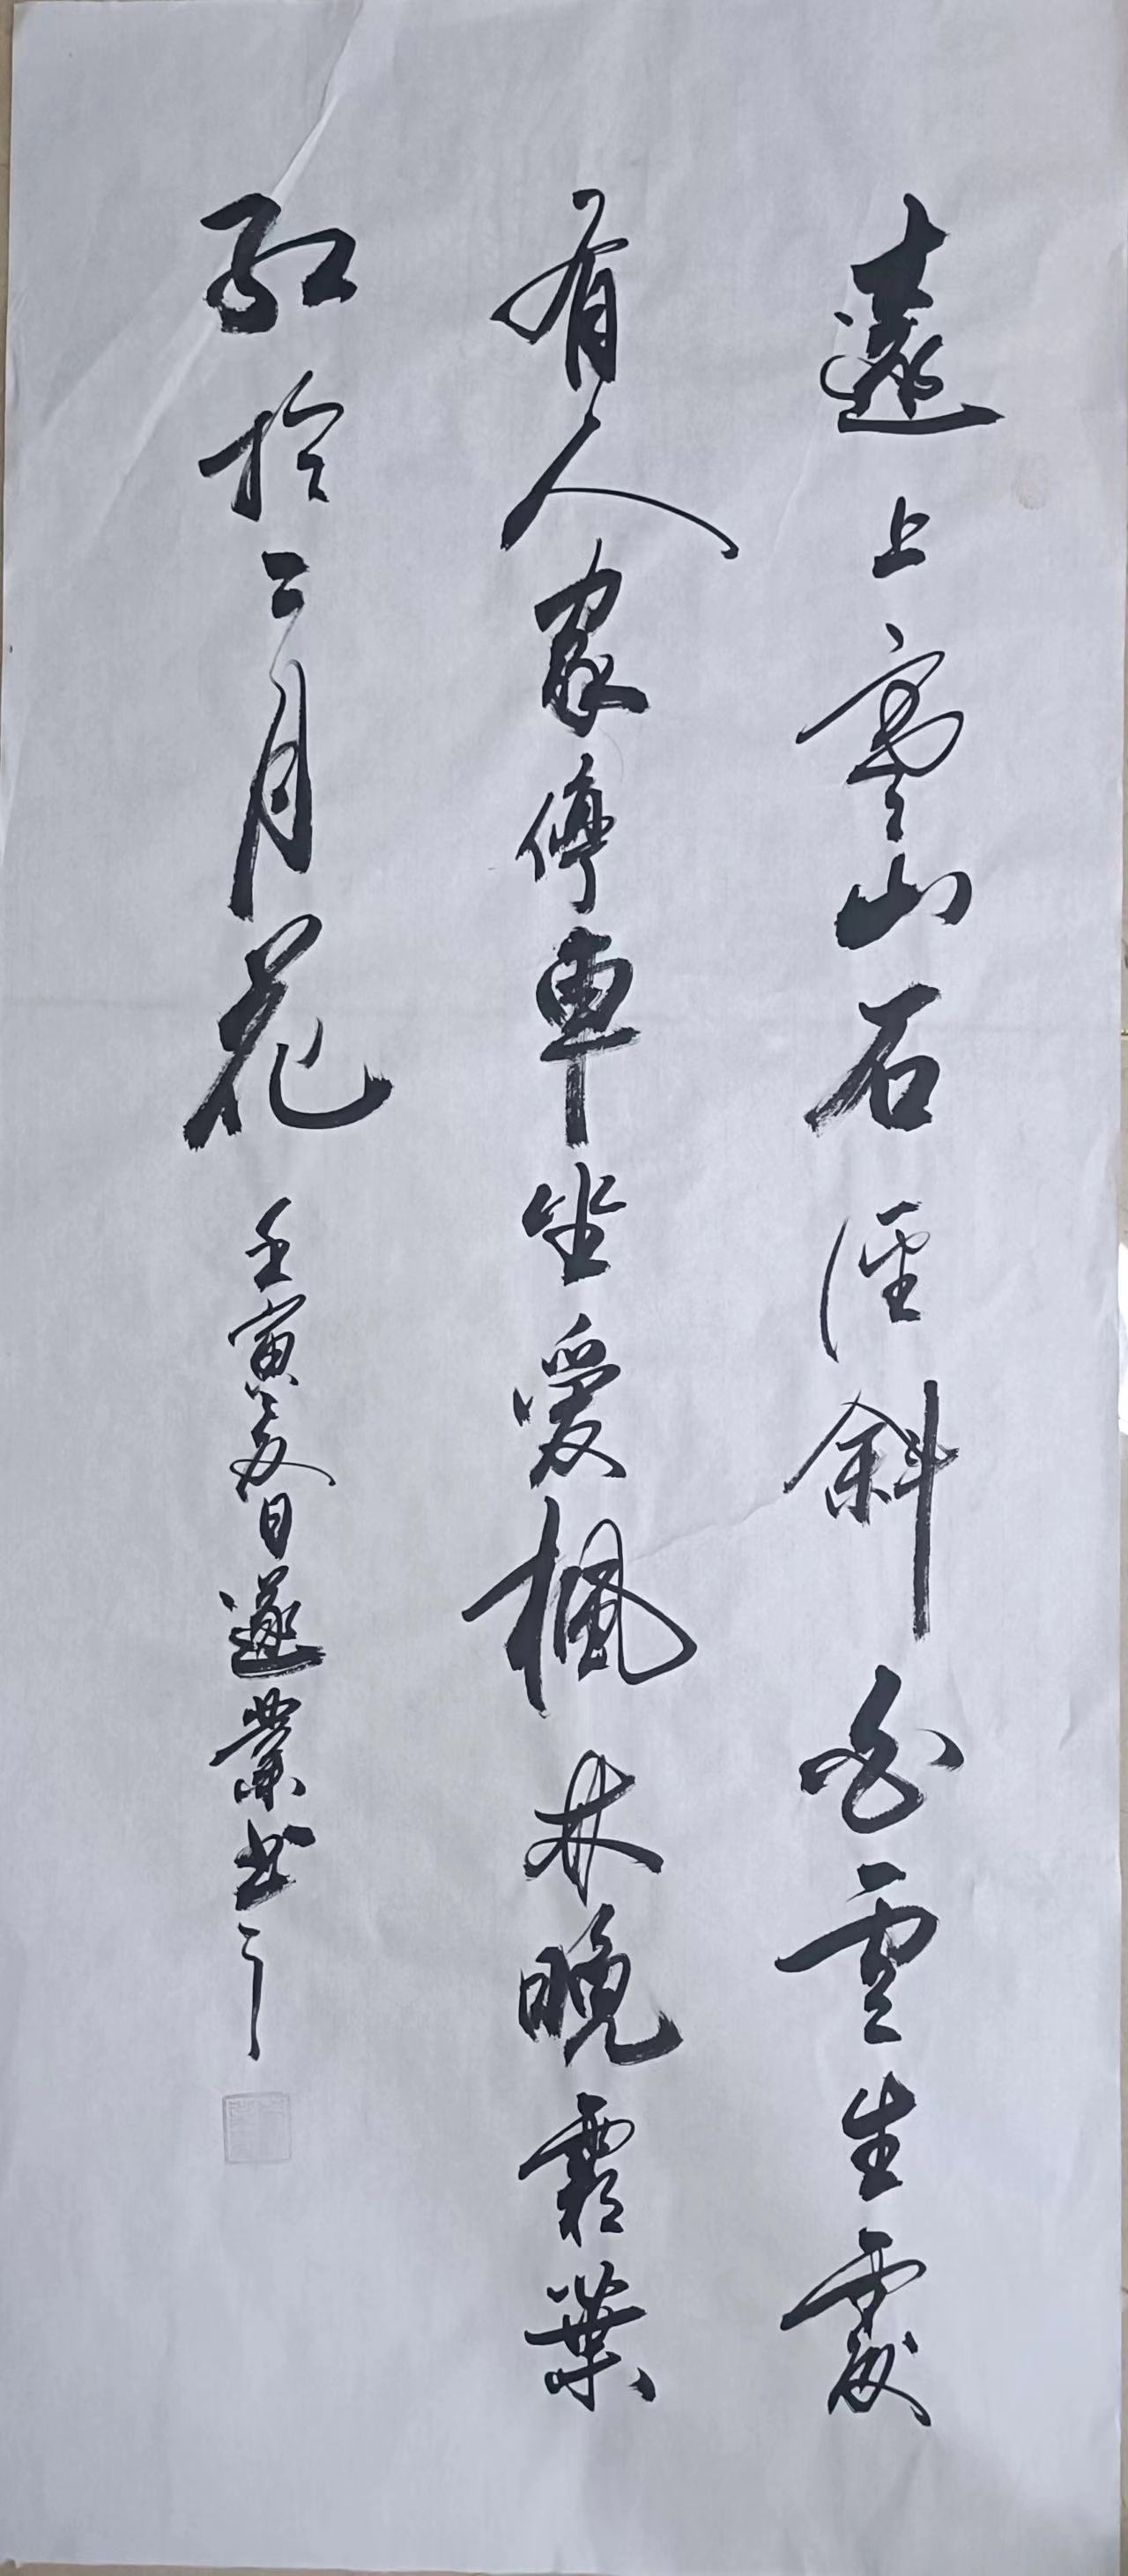 遠上寒山石徑斜白雲生處
有人家停車坐愛楓林晚霜葉
紅於二月花 壬寅夏日遂業书